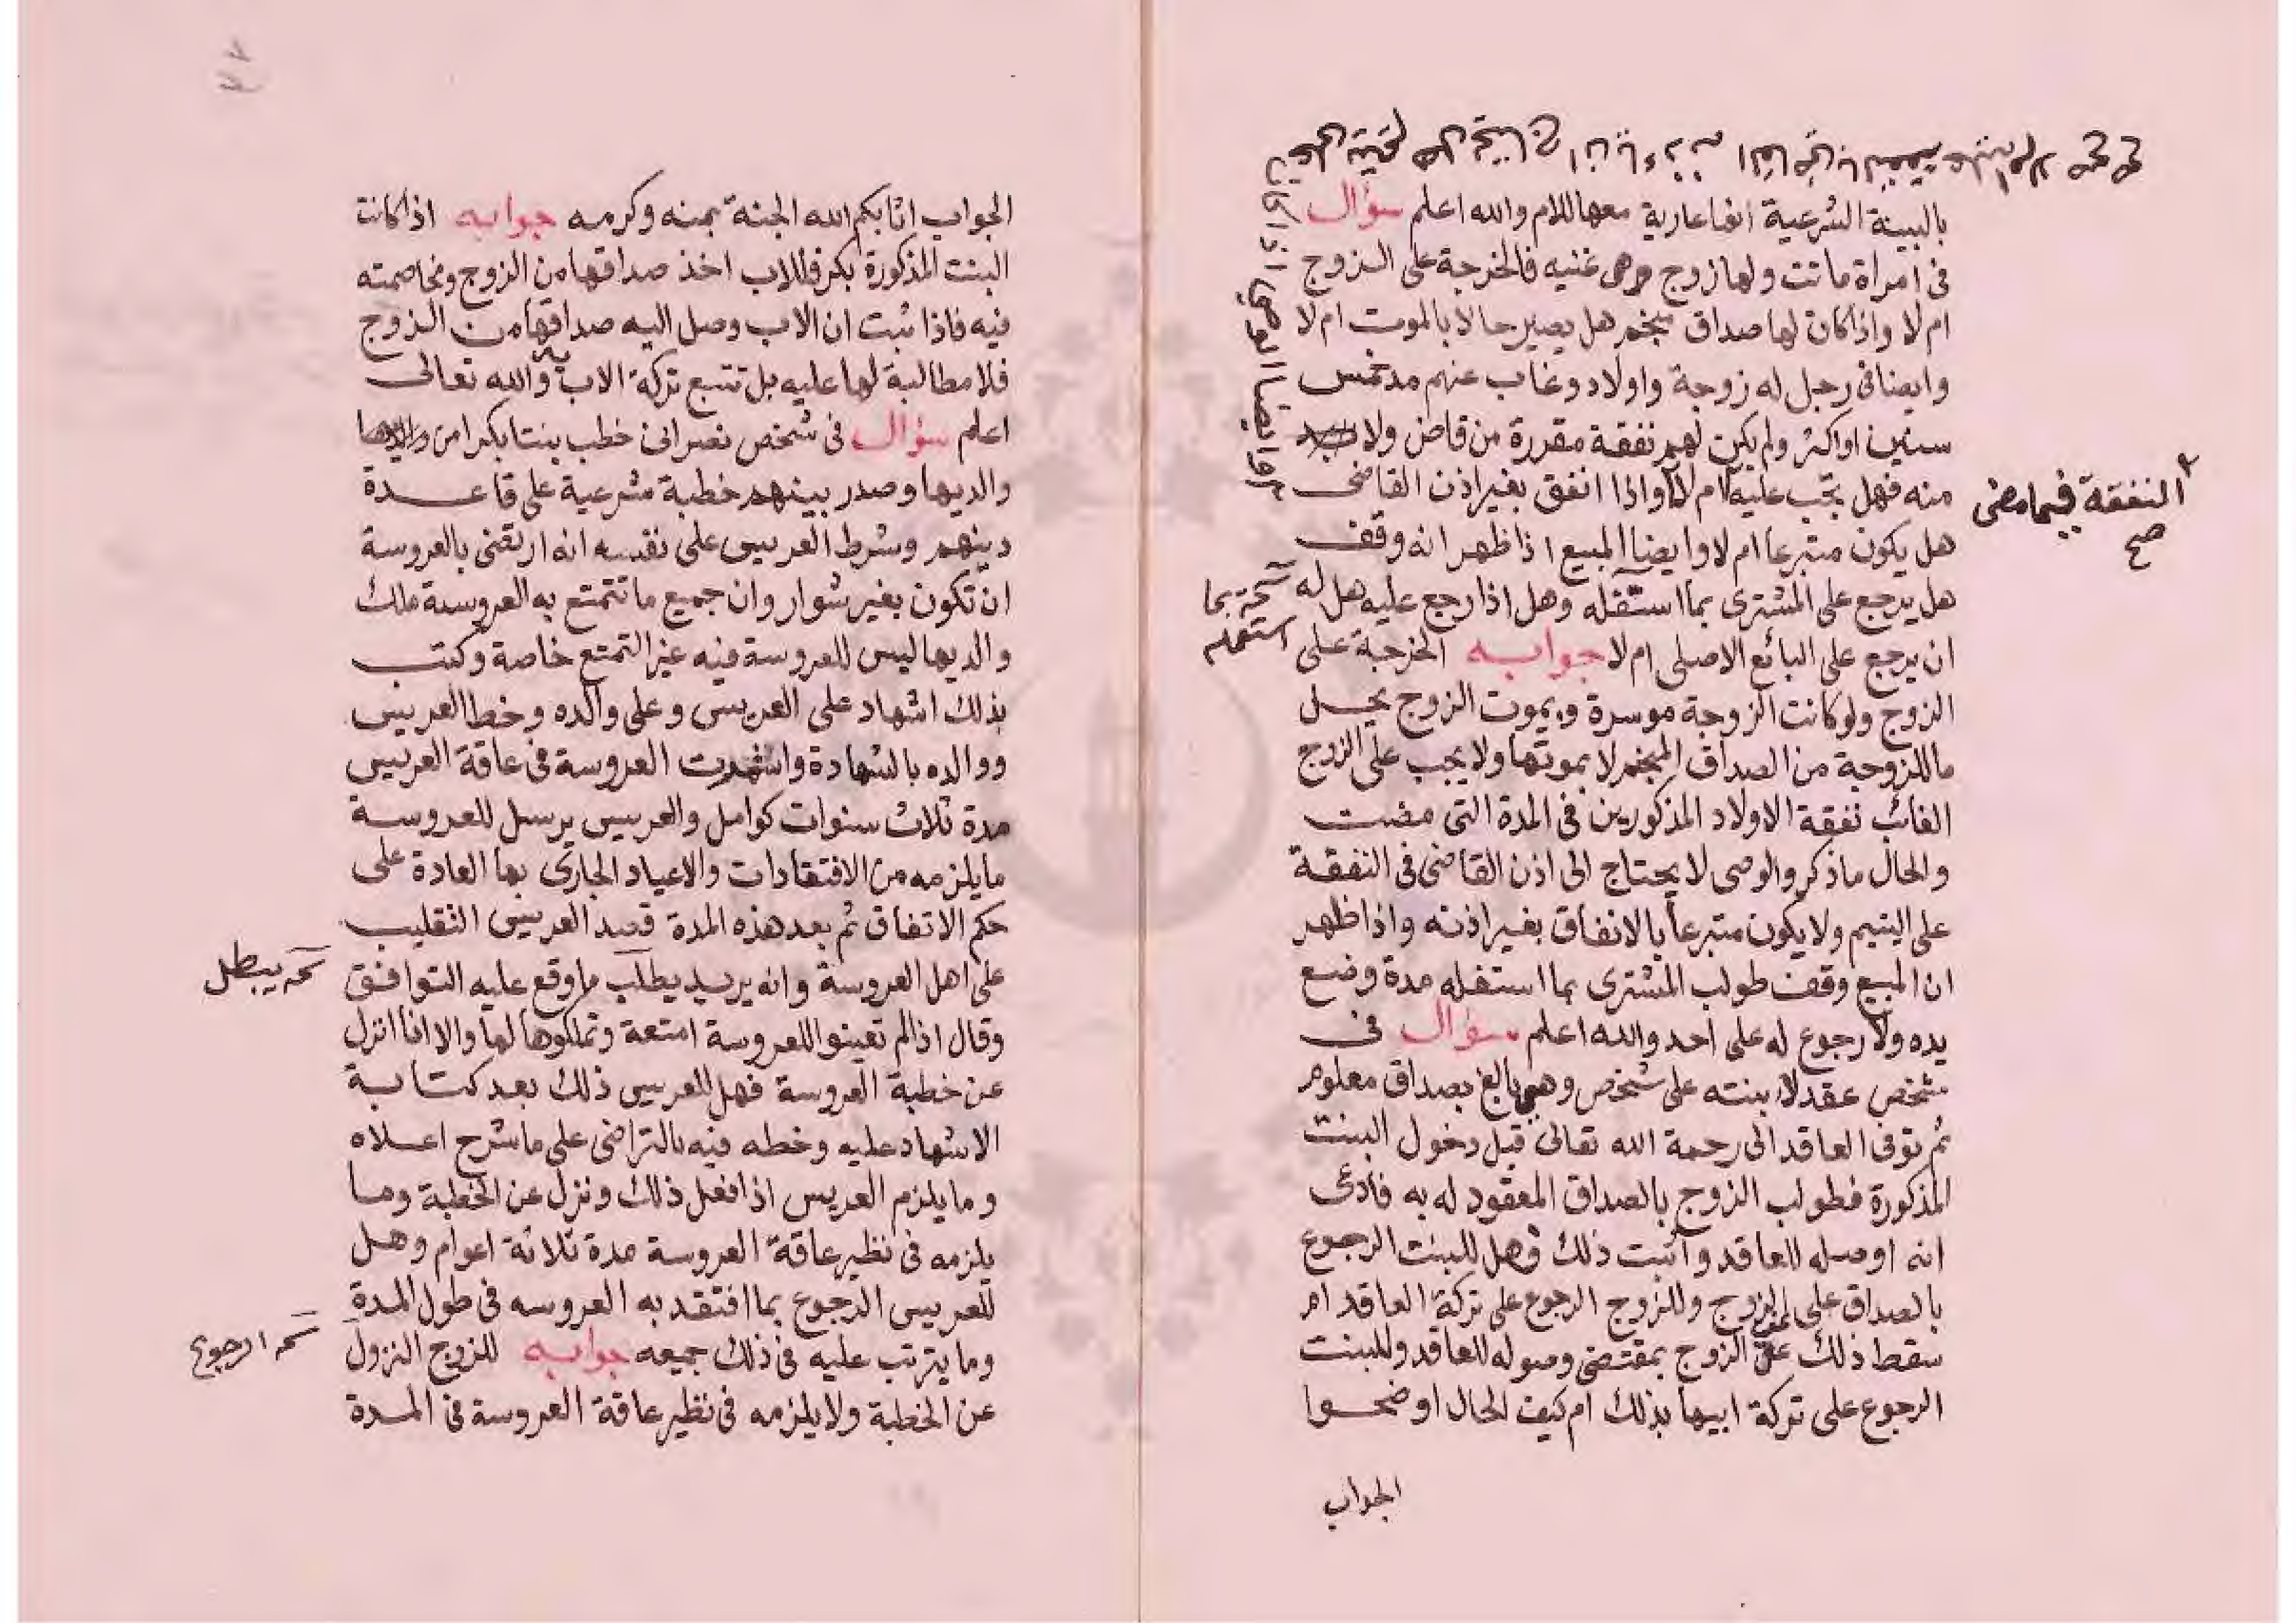 بالبينة الشرعية انها عارية معها للام والله اعلم سؤال
فى امراة ماتت ولها زوج وهى غنيه فالخرجة على الزوج
ام لا واذا كان لها صداق منجم هل يصير حالا بالموت ام لا
وايضا فى رجل له زوجة واولاد وغاب عنهم مدة خمس
سنين او اكثر ولم يكن لهم نفقة مقررة من قاض ولا
منه فهل يجب عليه ام لا واذا انفق بغير اذن القاضى
النفقة فيما مضى
صح
هل يكون متبرعا ام لا وايضا المبيع اذا ظهر انه وقف
هل يرجع على المشترى بما استغله وهل اذا رجع عليه هل له
بما
استعمله
ان يرجع على البائع الاصلى ام لا جوابه الخرجة على
الزوج ولو كانت الزوجة موسرة وبموت الزوج يحل
ما للزوجة من الصداق المنجم لا بموتها ولا يجب على الزوج
الغائب نفقة الاولاد المذكورين فى المدة التى مضت
والحال ما ذكر والوصى لا يحتاج الى اذن القاضى فى النفقة
على اليتيم ولا يكون متبرعا بالانفاق بغير اذنه واذا ظهر
ان المبيع وقف طولب المشترى بما استغله مدة وضع
يده ولا رجوع له على احد والله اعلم سؤال فى
شخص عقد لابنته على شخص وهى بالغ بصداق معلوم
ثم توفى العاقد الى رحمة الله تعالى قبل دخول البنت
المذكورة فطولب الزوج بالصداق المعقود له به فادعى
انه اوصله للعاقد واثبت ذلك فهل للبنت الرجوع
بالصداق على الزوج وللزوج الرجوع على تركة العاقد ام
سقط ذلك عن الزوج بمقتضى وصوله للعاقد وللبنت
الرجوع على تركة ابيها بذلك ام كيف الحال اوضحوا
الجواب
الجواب اثابكم الله الجنة بمنه وكرمه جوابه اذا كانت
البنت المذكورة بكر فللاب اخذ صداقها من الزوج ومخاصمته
فيه فاذا ثبت ان الاب وصل اليه صداقها من الزوج
فلا مطالبة لها عليه بل تتبع تركة الاب به والله تعالى
اعلم سؤال فى شخص نصرانى خطب بنتا بكرا من
والديها وصدر بينهم خطبة شرعية على قاعدة
دينهم وشرط العريس على نفسه انه ارتضى بالعروسة
ان تكون بغير شوار وان جميع ما تتمتع به العروسة ملك
والديها ليس للعروسة فيه غير التمتع خاصة وكتب
بذلك اشهاد على العريس وعلى والده وخط العريس
ووالده بالشهادة واشهدت العروسة فى عاقة العريس
مدة ثلاث سنوات كوامل والعريس يرسل للعروسة
ما يلزمه من الافتقادات والاعياد الجارى بها العادة على
حكم الاتفاق ثم بعد هذه المدة قصد العريس التقليب
على اهل العروسة وانه يريد يطلب ما وقع عليه التوافق
يبطل
وقال اذا لم تعينوا للعروسة امتعة وتملكوها لها والا انا انزل
عن خطبة العروسة فهل للعريس ذلك بعد كتابة
الاشهاد عليه وخطه فيه بالتراضى على ما شرح اعلاه
وما يلزم العريس اذا فعل ذلك ونزل عن الخطبة وما
يلزمه فى نظير عاقة العروسة مدة ثلاثة اعوام وهل
للعريس الرجوع بما افتقد به العروسه فى طول المدة
وما يترتب عليه فى ذلك جميعه جوابه للزوج النزول
الرجوع
عن الخطبة ولا يلزمه فى نظير عاقة العروسة فى المدة